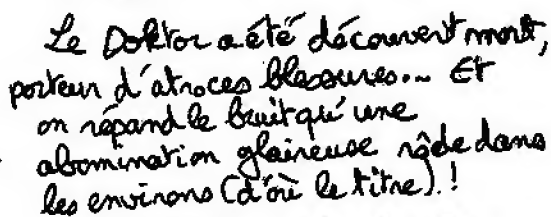 Le Doktor a été découvert mort,
porteur d'atroces blessures... Et
on répand le bruit qu'une
abomination glaireuse rôde dans
les environs (d'où le titre).!